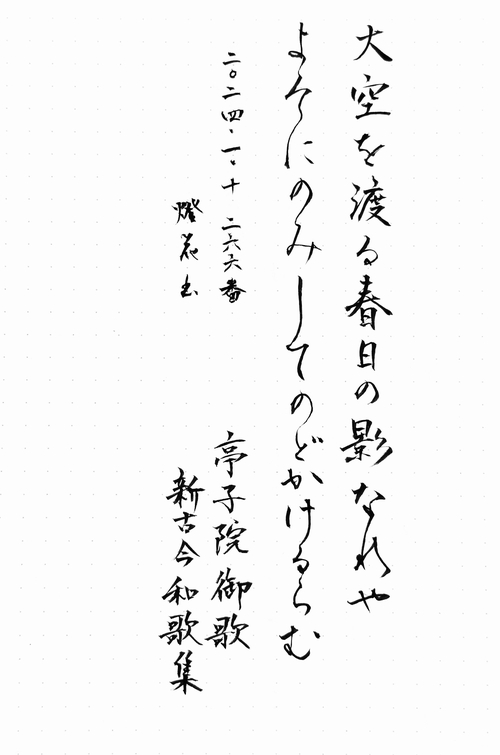 大空を渡る春日の影なれや
よそにのみしてのどかけるらむ
二〇二四・一・十 二六六番
亭子院御歌
燈花书
新古今和歌集